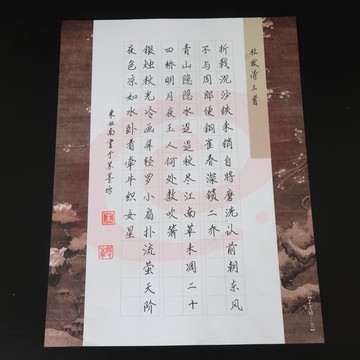 杜牧诗三首
折戟沉沙铁未销自将磨洗认前朝东风
不与周郎便铜雀春深锁二乔
青山隐隐水迢迢秋尽江南草未凋二十
四桥明月夜玉人何处教吹箫
银烛秋光冷画屏轻罗小扇扑流萤天阶
夜色凉如水卧看牵牛织女星